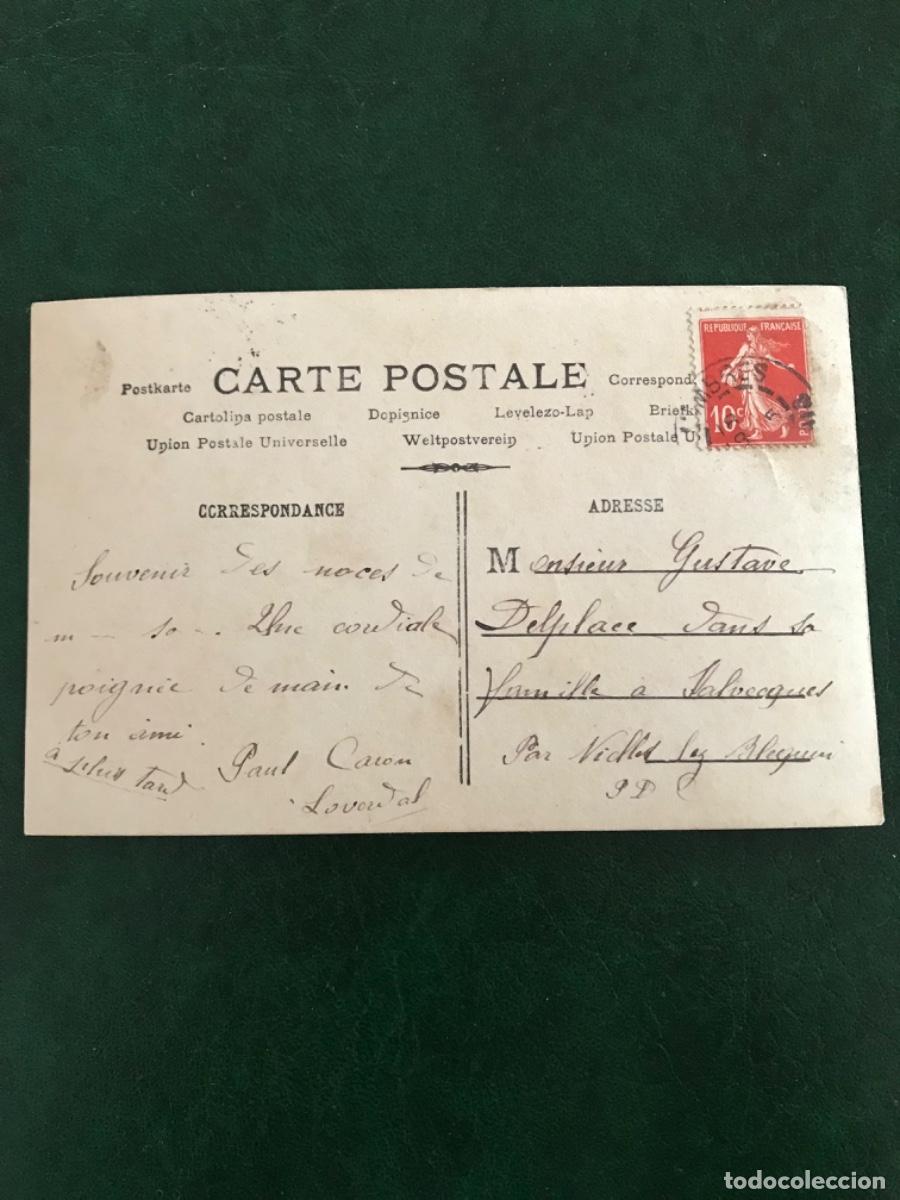 Postkarte CARTE POSTALE Correspond
Cartolina postale Dopisnice Levelezo-Lap Briefk
Union Postale Universelle Weltpostverein Union Postale U
REPUBLIQUE FRANÇAISE
10c
CORRESPONDANCE
Souvenir des noces de
m - so - . Une cordiale
poignée de main de
ton ami
à plus tard Paul Caron
ADRESSE
Monsieur Gustave
Delplace dans sa
famille à Halvecques
Par Nielles lez Blequin
PD
todocoleccion